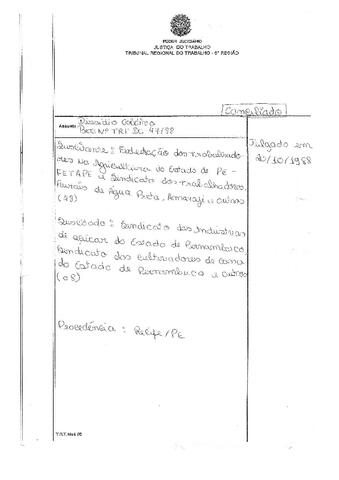 PODER JUDICIÁRIO
JUSTIÇA DO TRABALHO
TRIBUNAL REGIONAL DO TRABALHO - 6ª REGIÃO
Conciliado
Assunto: Dissídio Coletivo
Proc Nº TRT DC 47/88
Julgado em
20/10/1988
Suscitante: Federação dos trabalhado
res na Agricultura do Estado de PE -
FETAPE e Sindicato dos trabalhadores
Rurais de Água Preta, Amaraji e outros
(43)
Suscitado: Sindicato das Indústrias
de açúcar do Estado de Pernambuco,
Sindicato dos cultivadores de cana
do Estado de Pernambuco e outros
(08)
Procedência: Recife/PE
T.R.T. Mod.